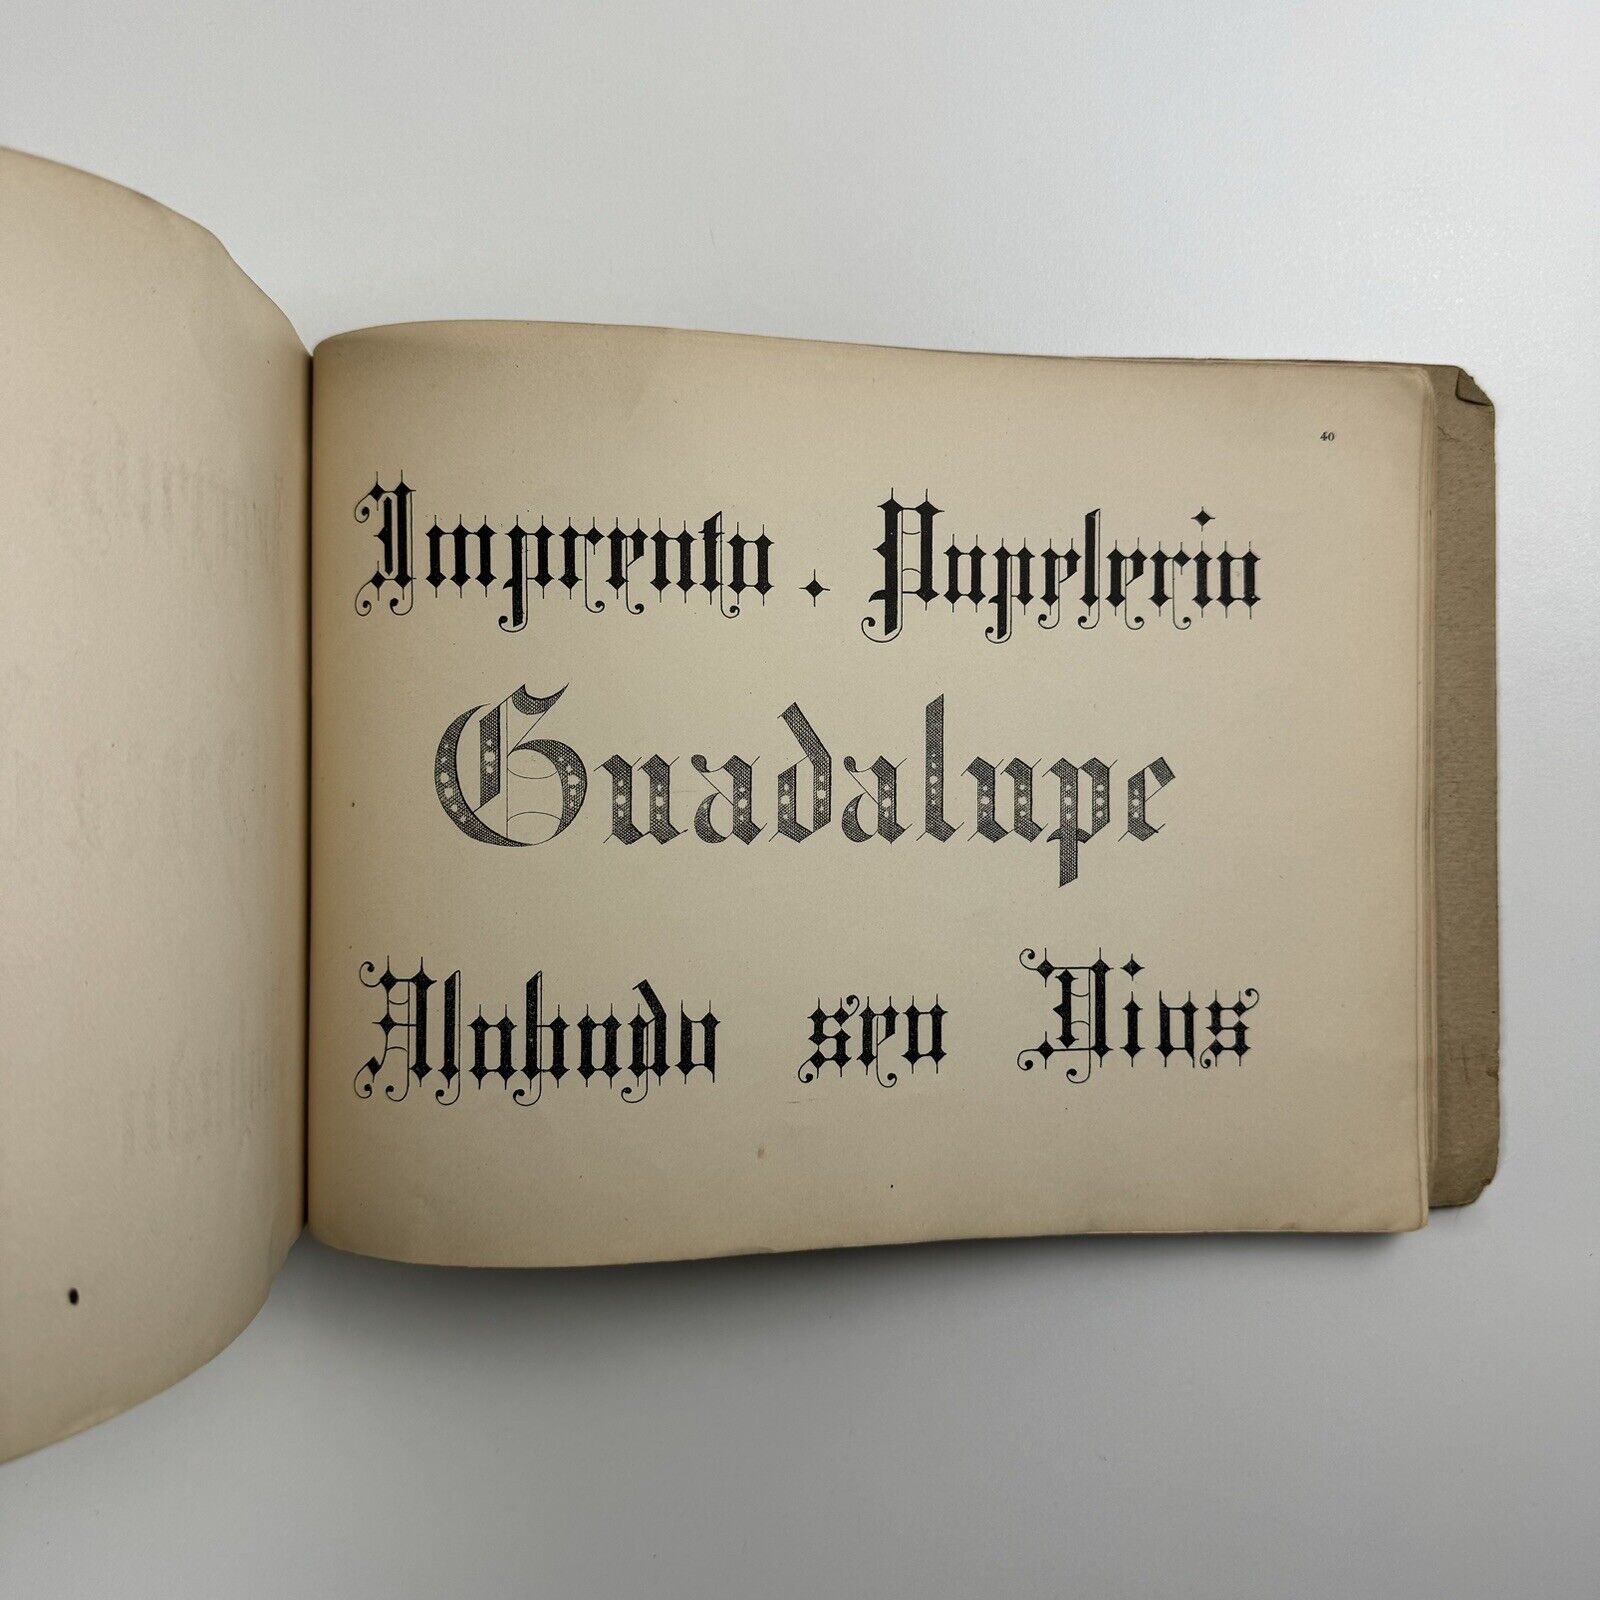 40
Imprenta . Papeleria
Guadalupe
Alabado sea Dios